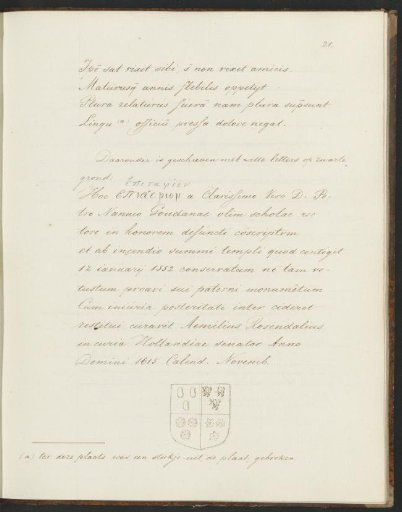 21.
Ipē sat vixit sibi, s̄ non vixit amicis.
Maturusq annis flebilis oppetyt
Plura relaturus fuerā nam plura supsunt
Lingu (a) officiū pressa dolore negat.
Daaronder is geschreven met witte letters op zwarte
grond.
Επιταφιον
Hoc επιταφιον a Clarissimo Viro D. Pe-
tro Nannio Goudanae olim scholae rec
tore in honorem defuncti conscriptum
et ab incendio summi templi quod contigit
12 january 1552 conservatum ne tam ve-
tustum proavi sui paterni monumētum
Cum incuria posteritati inter cideret
restitui curavit Aemelius Rosendalius
in curia Hollandiae senator Anno
Domini 1615 Calend. Novemb.
(a) ter deze plaats was een stukje uit de plaat gebroken